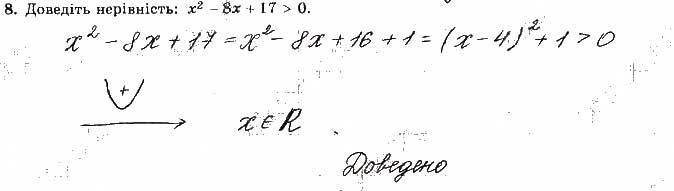 8. Доведіть нерівність: x² − 8x + 17 > 0.
x² − 8x + 17 = x² − 8x + 16 + 1 = (x − 4)² + 1 > 0
+
x ∈ R
Доведено